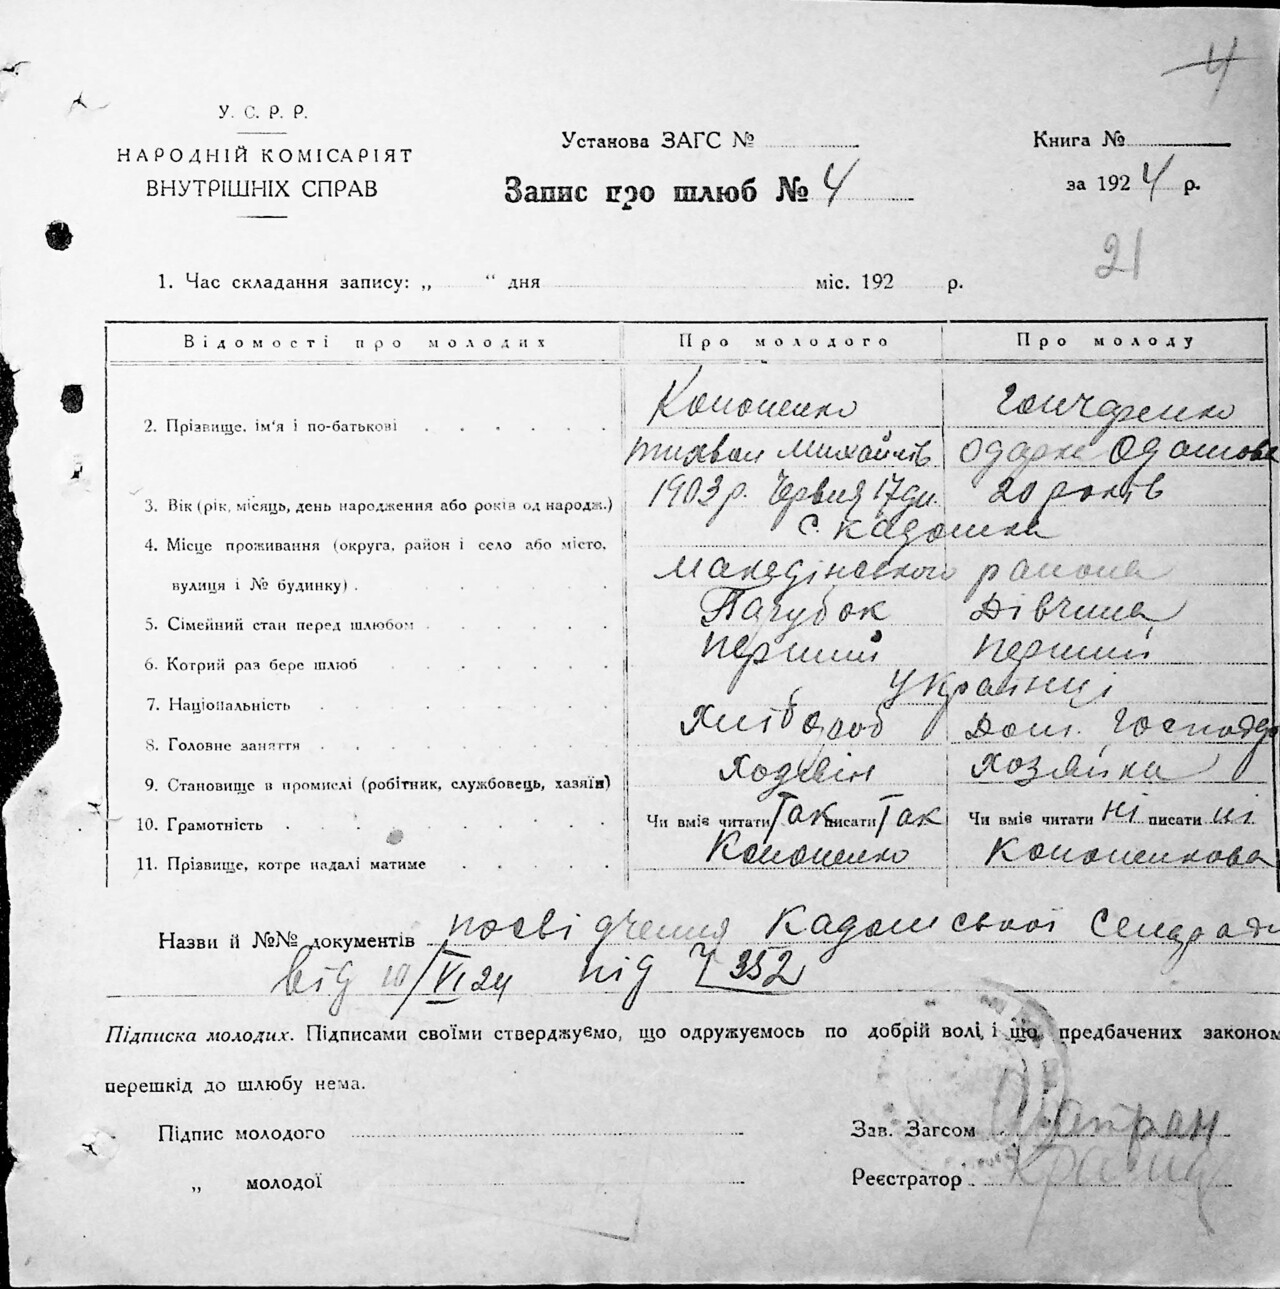 4
У. С. Р. Р.
НАРОДНІЙ КОМІСАРІЯТ
ВНУТРІШНІХ СПРАВ
Установа ЗАГС №
Запис про шлюб № 4
Книга №
за 1924 р.
21
1. Час складання запису: „ “ дня міс. 192 р.
Відомості про молодих Про молодого Про молоду
Кононенко Гончаренко
2. Прізвище, ім'я і по-батькові
тихвон Михайлів Одарка
1903 р. Червня 17 дн. 20 років
3. Вік (рік, місяць, день народження або років од народж.)
с. Кадомка
4. Місце проживання (округа, район і село або місто,
района
вулиця і № будинку)
Парубок Дівчина
5. Сімейний стан перед шлюбом
перший перший
6. Котрий раз бере шлюб
Українці
7. Національність
Хлібороб Дом. Господар
8. Головне заняття
Ходзяїн Хозяйка
9. Становище в промислі (робітник, службовець, хазяїн)
10. Грамотність Чи вміє читати Так писати Так Чи вміє читати ні писати ні
Кононенко Кононенкова
11. Прізвище, котре надалі матиме
Назви й №№ документів посвідчення Кадомської Сельради
від 10/VI 24 під Ч 352
Підписка молодих. Підписами своїми стверджуємо, що одружуємось по добрій волі, і що, предбачених законом
перешкід до шлюбу нема.
Підпис молодого Зав. Загсом
„ молодої Реєстратор